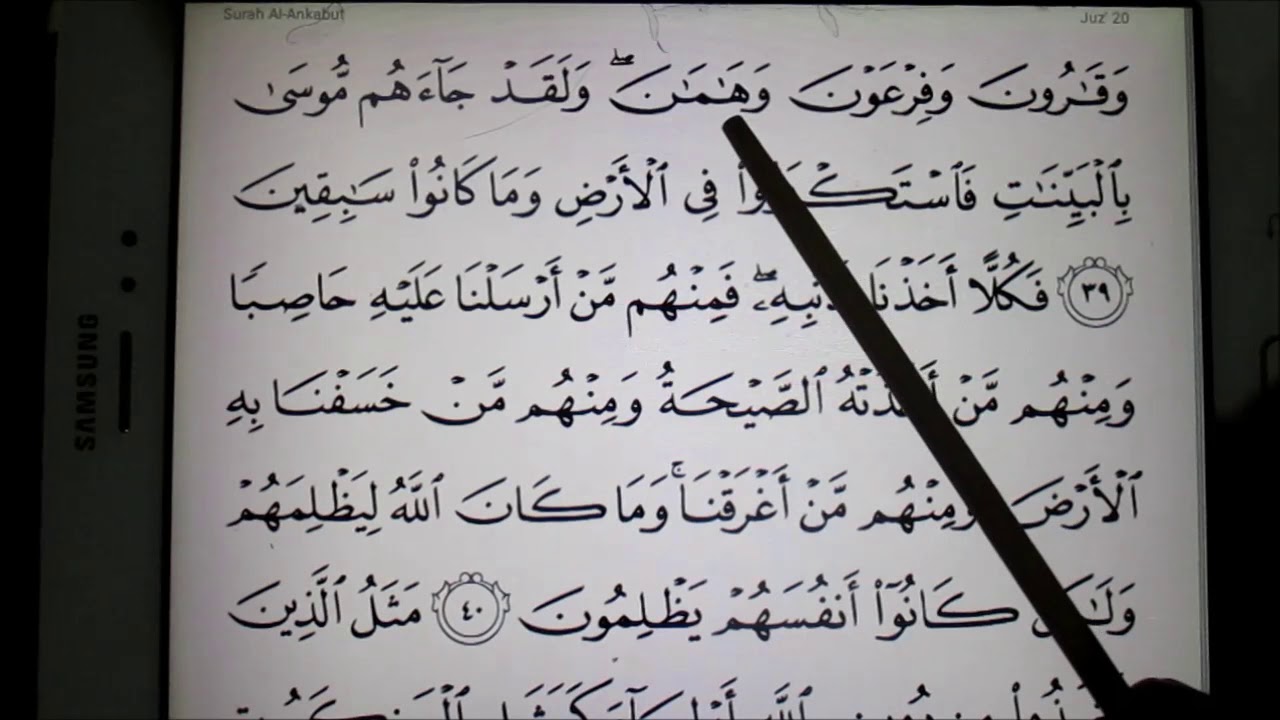 Surah Al-Ankabut Juz' 20
وَقَٰرُونَ وَفِرْعَوْنَ وَهَٰمَٰنَ ۖ وَلَقَدْ جَآءَهُم مُّوسَىٰ
بِٱلْبَيِّنَٰتِ فَٱسْتَكْبَرُوا۟ فِى ٱلْأَرْضِ وَمَا كَانُوا۟ سَٰبِقِينَ
٣٩ فَكُلًّا أَخَذْنَا بِذَنۢبِهِۦ ۖ فَمِنْهُم مَّنْ أَرْسَلْنَا عَلَيْهِ حَاصِبًا
وَمِنْهُم مَّنْ أَخَذَتْهُ ٱلصَّيْحَةُ وَمِنْهُم مَّنْ خَسَفْنَا بِهِ
ٱلْأَرْضَ وَمِنْهُم مَّنْ أَغْرَقْنَا ۚ وَمَا كَانَ ٱللَّهُ لِيَظْلِمَهُمْ
وَلَٰكِن كَانُوٓا۟ أَنفُسَهُمْ يَظْلِمُونَ ٤٠ مَثَلُ ٱلَّذِينَ
SAMSUNG